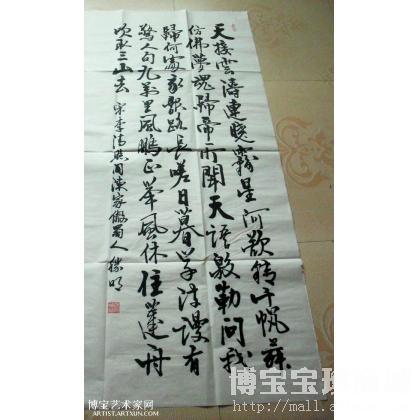 天接雲濤連曉霧星河欲轉千帆舞
仿佛夢魂歸帝所聞天語殷勤問我
歸何處我報路長嗟日暮學詩謾有
驚人句九萬里風鵬正舉風休住蓬舟
吹取三山去 宋李清照詞漁家傲蜀人
博宝艺术家网
ARTIST.ARTXUN.COM
博宝宝